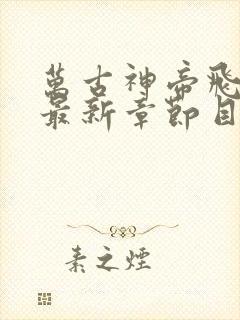 萬古神帝飛
最新章節目
素之煙